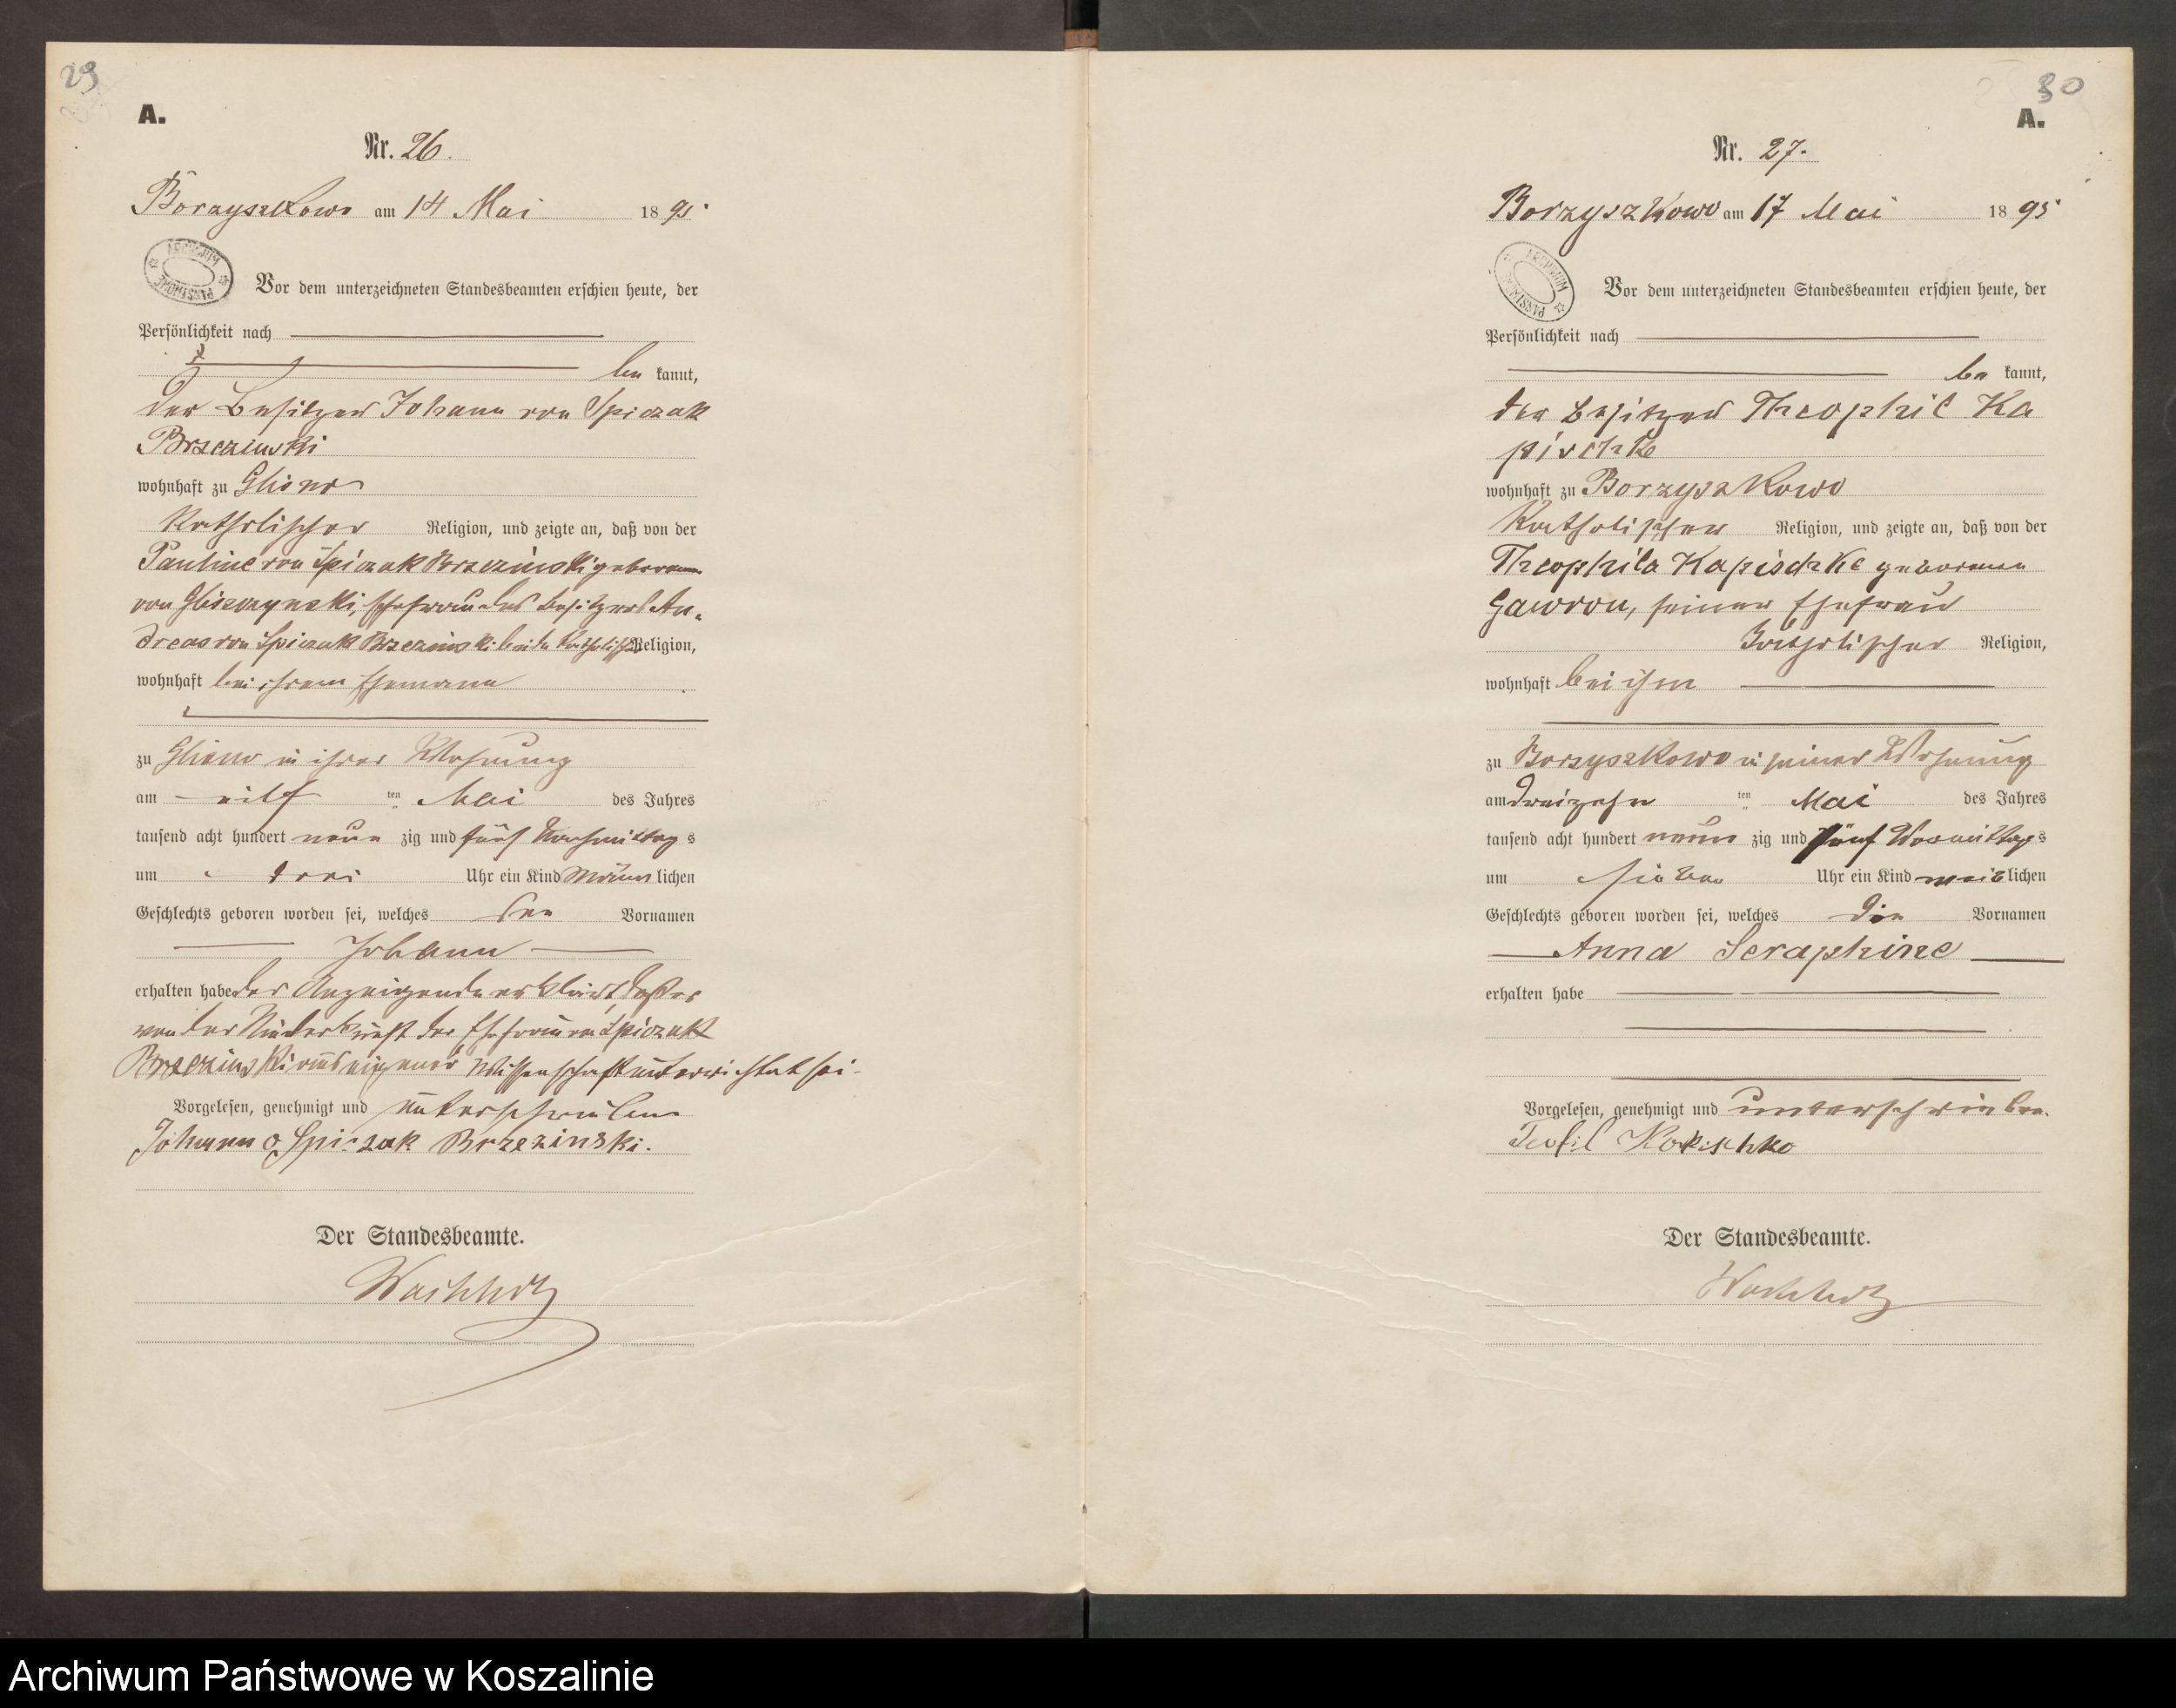 29
A.
Nr. 26.
Borzyszkowo am 14 Mai 1895
ARCHIWUM PAŃSTWOWE
Vor dem unterzeichneten Standesbeamten erschien heute, der
Persönlichkeit nach
be kannt,
der Besitzer Johann von Spiczak
Brzezinski
wohnhaft zu Glisno
katholischer Religion, und zeigte an, daß von der
Pauline von Spiczak Brzezinski geborenen
von Gliszczynski, Ehefrau des Besitzers An-
dreas von Spiczak Brzezinski beide katholischer Religion,
wohnhaft bei ihrem Ehemann
zu Glisno in ihrer Wohnung
am eilf ten Mai des Jahres
tausend acht hundert neun zig und fünf Nachmittag s
um drei Uhr ein Kind männ lichen
Geschlechts geboren worden sei, welches den Vornamen
Johann
erhalten habe der Anzeigende erklärt, daß er
von der Niederkunft der Ehefrau von Spiczak
Brzezinski aus eigener Wissenschaft unterrichtet sei.
Vorgelesen, genehmigt und unterschrieben
Johann v Spiczak Brzezinski.
Der Standesbeamte.
Wachholz
30
A.
Nr. 27.
Borzyszkowo am 17 Mai 1895
ARCHIWUM PAŃSTWOWE
Vor dem unterzeichneten Standesbeamten erschien heute, der
Persönlichkeit nach
be kannt,
der Besitzer Theophil Ka
pischke
wohnhaft zu Borzyszkowo
katholischer Religion, und zeigte an, daß von der
Theophila Kapischke geborenen
Gawron, seiner Ehefrau
katholischer Religion,
wohnhaft bei ihm
zu Borzyszkowo in seiner Wohnung
am dreizehn ten Mai des Jahres
tausend acht hundert neun zig und fünf Vormittag s
um sieben Uhr ein Kind weib lichen
Geschlechts geboren worden sei, welches die Vornamen
Anna Seraphine
erhalten habe
Vorgelesen, genehmigt und unterschrieben.
Teofil Kapischke
Der Standesbeamte.
Wachholz
Archiwum Państwowe w Koszalinie